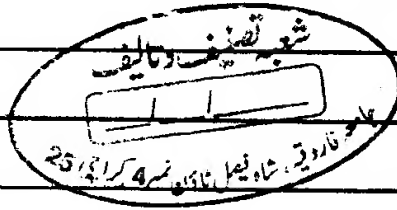 شعبہ تصنیف و تالیف
جامعہ فاروقیہ، شاہ فیصل ٹاؤن نمبر 4 کراچی 25